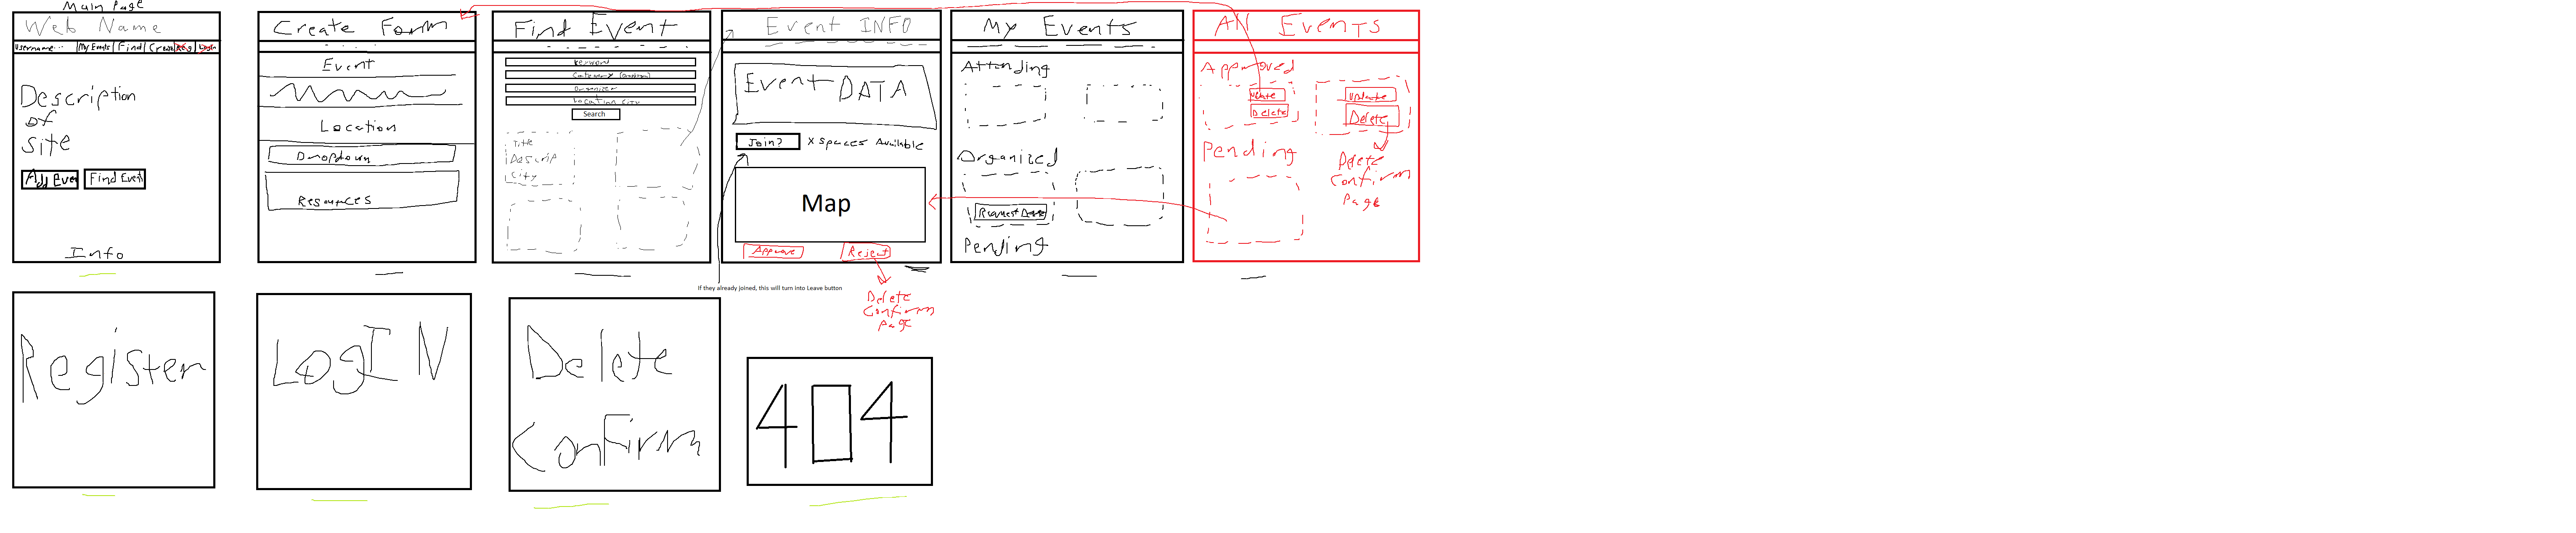 Main Page
Web Name
Username... | My Events | Find | Create Reg | Login
Description
of
site
Add Even
Find Event
Info
Create Form
Event
Location
Dropdown
Resources
Find Event
Keyword
Organizer
Location City
Search
Title
Descrip
City
Event INFO
Event DATA
Join?
X Spaces Available
Map
Approve
Reject
If they already joined, this will turn into Leave button
Delete
Confirm
Page
My Events
Attending
Organized
Pending
All Events
Approved
Update
Delete
Update
Delete
Pending
Delete
Confirm
Page
Register
LogIN
Delete
Confirm
404